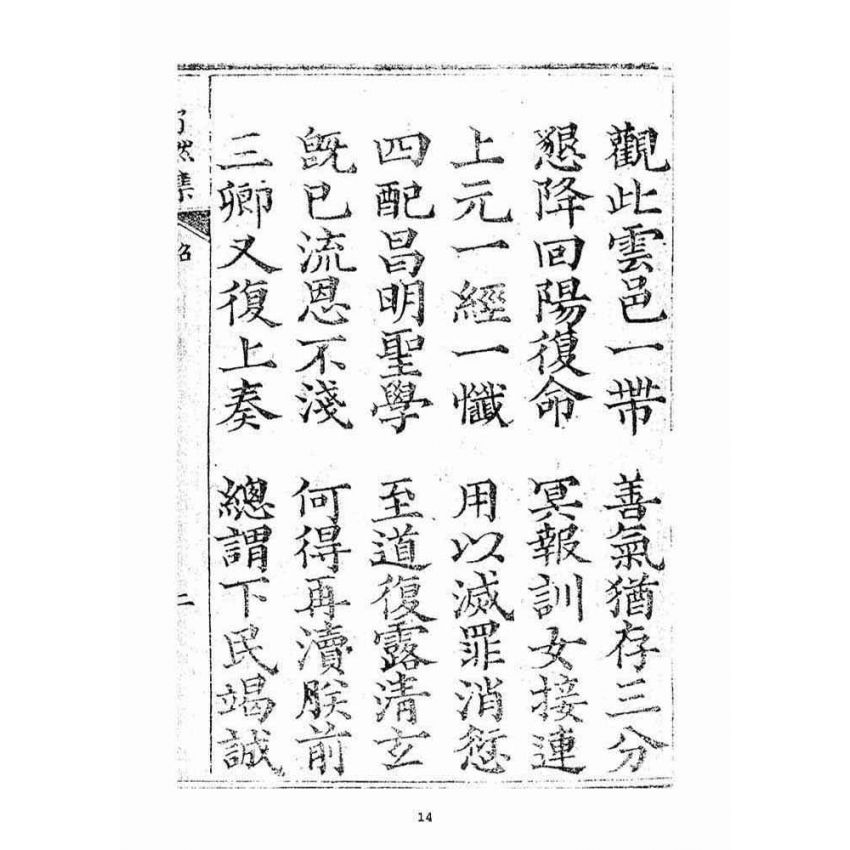 觀此雲邑一帶 善氣猶存三分
懇降回陽復命 冥報訓女接連
上元一經一懺 用以滅罪消愆
四配昌明聖學 至道復露清玄
旣已流恩不淺 何得再瀆朕前
三卿又復上奏 總謂下民竭誠
然集
二
14